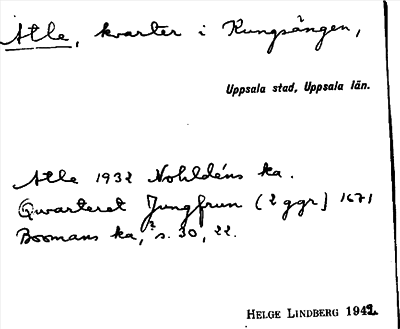 Atle, kvarter i Kungsängen,
Uppsala stad, Uppsala län.
Atle 1932 Nohldéns ka.
Qvarteret Jungfrun (2 ggr) 1671
Boomans ka, s. 30, 22.
HELGE LINDBERG 1942.